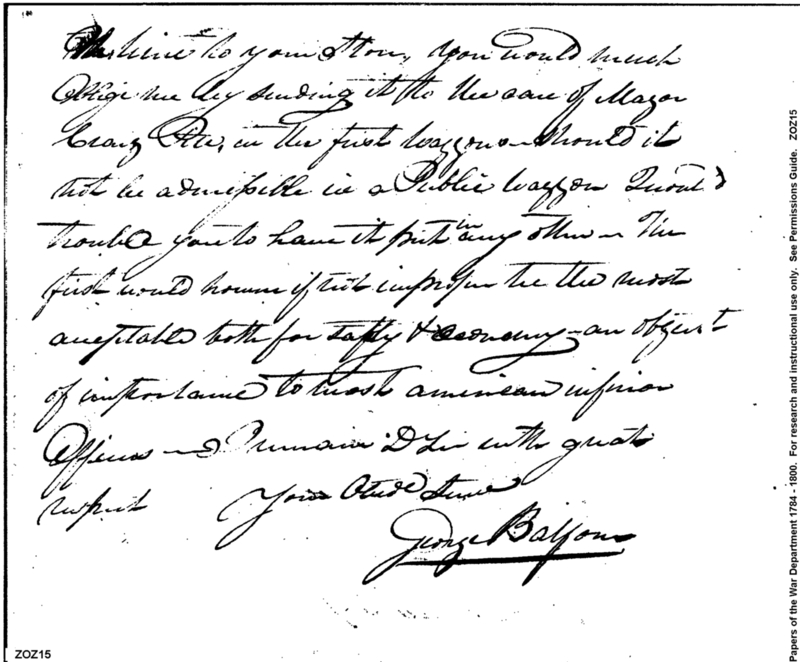 time to your Store, you would much
Oblige me by sending it to the care of Major
Craig Pitt, in the first waggon — should it
not be admissible in a Public Waggon I would
trouble you to have it put in any other — The
first would however if not improper be the most
acceptable both for safty & economy — an object
of importance to most american inferior
Officers — I remain D Sir with great
respect Your Obed Serv
George Balfour
ZOZ15
Papers of the War Department 1784 - 1800. For research and instructional use only. See Permissions Guide. ZOZ15